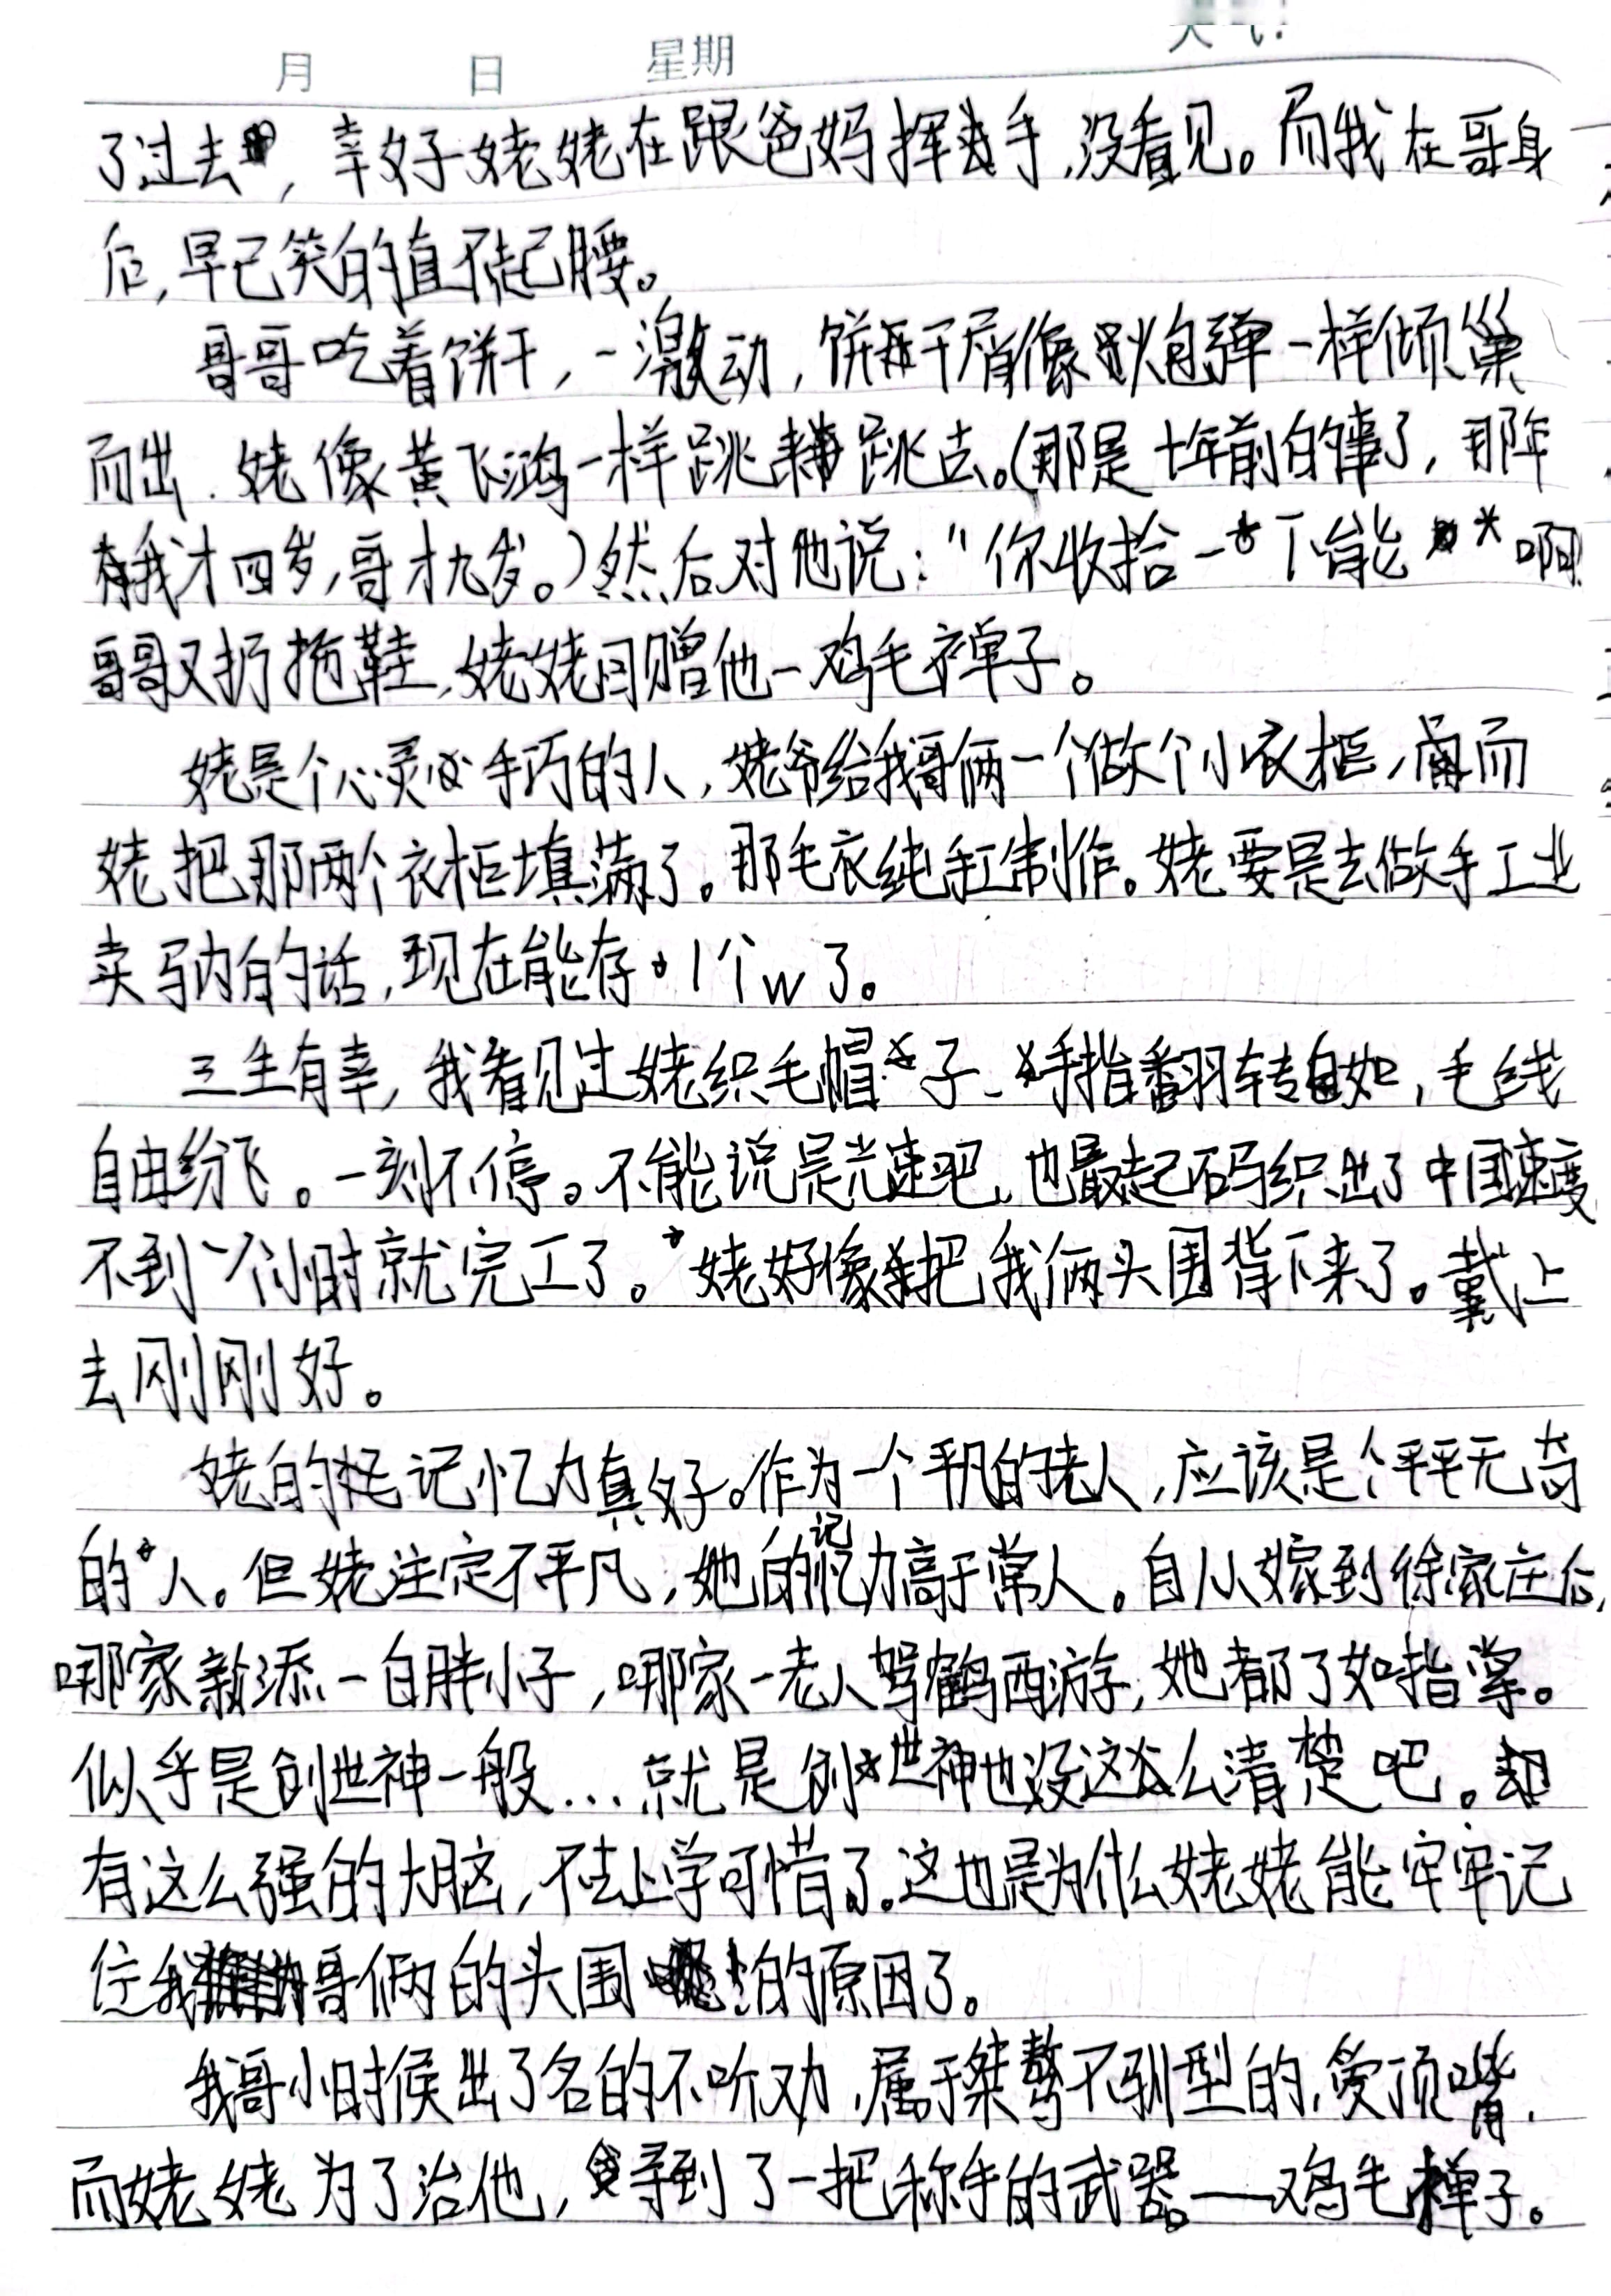 月 日 星期 天气:
了过去,幸好姥姥在跟爸妈挥手,没看见。而我在哥身
后,早已笑的直不起腰。
哥哥吃着饼干,一激动,饼干屑像炮弹一样倾巢
而出.姥像黄飞鸿一样跳来跳去。(那是十年前的事了,那年
我才四岁,哥才九岁。)然后对他说:“你收拾一下能 啊
哥哥又扔拖鞋,姥姥回赠他一鸡毛掸子。
姥是个心灵手巧的人,姥爷给我哥俩一个做个小衣柜,而
姥把那两个衣柜填满了。那毛衣纯手工制作。姥要是去做手工业
卖 的话,现在能存1个w了。
三生有幸,我看见过姥织毛帽子.手指翻转自如,毛线
自由纷飞。一刻不停。不能说是光速吧,也最起码织出了中国速度
不到一个小时就完工了。姥好像把我俩头围背下来了。戴上
去刚刚好。
姥的记忆力真好。作为一个平凡的老人,应该是个平平无奇
的人。但姥注定不平凡,她的记忆力高于常人。自从嫁到徐家庄后,
哪家新添一白胖小子,哪家一老人驾鹤西游,她都了如指掌。
似乎是创世神一般...就是创世神也没这么清楚吧。却
有这么强的大脑,不去上学可惜了。这也是为什么姥姥能牢牢记
住我哥俩的头围的原因了。
我哥小时候出了名的不听劝,属于桀骜不驯型的,爱顶嘴.
而姥姥为了治他,寻到了一把称手的武器。——鸡毛掸子。